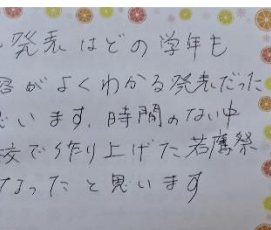 発表はどの学年も
がよくわかる発表だった
います。時間のない中
で作り上げた若鷹祭
なったと思います